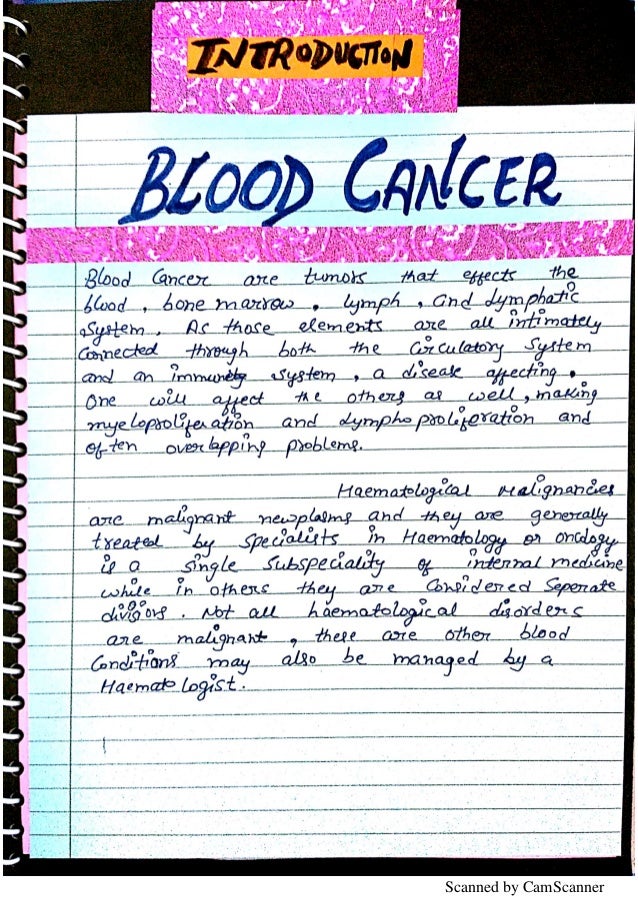 INTRODUCTION
BLOOD CANCER
Blood Cancer are tumors that effects the
blood, bone marrow, lymph, and lymphatic
System. As those elements are all intimately
Connected through both the Circulatory System
and an immunity System, a disease affecting,
One will affect the others as well, making
myeloproliferation and lymphoproliferation and
often overlapping problems.
Haematological Malignancies
are malignant newplasms and they are generally
treated by specialists in Haematology or oncology
is a single Subspeciality of internal medicine
while in others they are Considered Seperate
divisions. Not all haematological disorders
are malignant, these are other blood
Conditions may also be managed by a
Haematologist.
Scanned by CamScanner